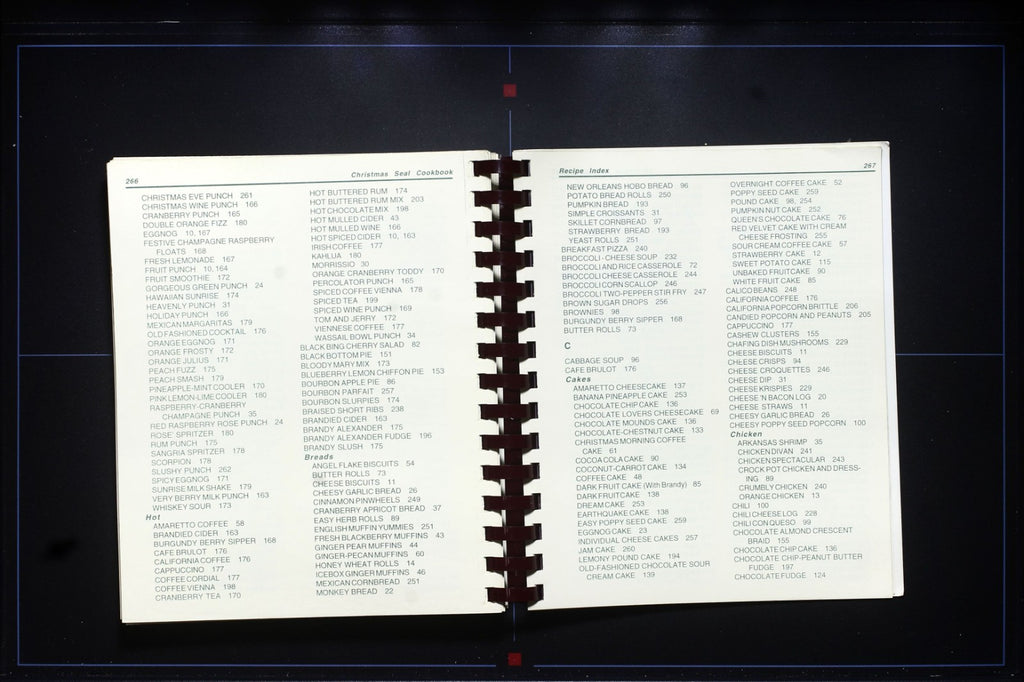 266
Christmas Seal Cookbook
CHRISTMAS EVE PUNCH 261
CHRISTMAS WINE PUNCH 166
CRANBERRY PUNCH 165
DOUBLE ORANGE FIZZ 180
EGGNOG 10, 167
FESTIVE CHAMPAGNE RASPBERRY
FLOATS 168
FRESH LEMONADE 167
FRUIT PUNCH 10, 164
FRUIT SMOOTHIE 172
GORGEOUS GREEN PUNCH 24
HAWAIIAN SUNRISE 174
HEAVENLY PUNCH 31
HOLIDAY PUNCH 166
MEXICAN MARGARITAS 179
OLD FASHIONED COCKTAIL 176
ORANGE EGGNOG 171
ORANGE FROSTY 172
ORANGE JULIUS 171
PEACH FUZZ 175
PEACH SMASH 179
PINEAPPLE-MINT COOLER 170
PINK LEMON-LIME COOLER 180
RASPBERRY-CRANBERRY
CHAMPAGNE PUNCH 35
RED RASPBERRY ROSE PUNCH 24
ROSE' SPRITZER 180
RUM PUNCH 175
SANGRIA SPRITZER 178
SCORPION 178
SLUSHY PUNCH 262
SPICY EGGNOG 171
SUNRISE MILK SHAKE 179
VERY BERRY MILK PUNCH 163
WHISKEY SOUR 173
Hot
AMARETTO COFFEE 58
BRANDIED CIDER 163
BURGUNDY BERRY SIPPER 168
CAFE BRULOT 176
CALIFORNIA COFFEE 176
CAPPUCCINO 177
COFFEE CORDIAL 177
COFFEE VIENNA 198
CRANBERRY TEA 170
HOT BUTTERED RUM 174
HOT BUTTERED RUM MIX 203
HOT CHOCOLATE MIX 198
HOT MULLED CIDER 43
HOT MULLED WINE 166
HOT SPICED CIDER 10, 163
IRISH COFFEE 177
KAHLUA 180
MORRISSIO 30
ORANGE CRANBERRY TODDY 170
PERCOLATOR PUNCH 165
SPICED COFFEE VIENNA 178
SPICED TEA 199
SPICED WINE PUNCH 169
TOM AND JERRY 172
VIENNESE COFFEE 177
WASSAIL BOWL PUNCH 34
BLACK BING CHERRY SALAD 82
BLACK BOTTOM PIE 151
BLOODY MARY MIX 173
BLUEBERRY LEMON CHIFFON PIE 153
BOURBON APPLE PIE 86
BOURBON PARFAIT 257
BOURBON SLURPIES 174
BRAISED SHORT RIBS 238
BRANDIED CIDER 163
BRANDY ALEXANDER 175
BRANDY ALEXANDER FUDGE 196
BRANDY SLUSH 175
Breads
ANGEL FLAKE BISCUITS 54
BUTTER ROLLS 73
CHEESE BISCUITS 11
CHEESY GARLIC BREAD 26
CINNAMON PINWHEELS 249
CRANBERRY APRICOT BREAD 37
EASY HERB ROLLS 89
ENGLISH MUFFIN YUMMIES 251
FRESH BLACKBERRY MUFFINS 43
GINGER PEAR MUFFINS 44
GINGER-PECAN MUFFINS 60
HONEY WHEAT ROLLS 14
ICEBOX GINGER MUFFINS 46
MEXICAN CORNBREAD 251
MONKEY BREAD 22
Recipe Index
267
NEW ORLEANS HOBO BREAD 96
POTATO BREAD ROLLS 250
PUMPKIN BREAD 193
SIMPLE CROISSANTS 31
SKILLET CORNBREAD 97
STRAWBERRY BREAD 193
YEAST ROLLS 251
BREAKFAST PIZZA 240
BROCCOLI-CHEESE SOUP 232
BROCCOLI AND RICE CASSEROLE 72
BROCCOLI CHEESE CASSEROLE 244
BROCCOLI CORN SCALLOP 246
BROCCOLI TWO-PEPPER STIR FRY 247
BROWN SUGAR DROPS 256
BROWNIES 98
BURGUNDY BERRY SIPPER 168
BUTTER ROLLS 73
C
CABBAGE SOUP 96
CAFE BRULOT 176
Cakes
AMARETTO CHEESECAKE 137
BANANA PINEAPPLE CAKE 253
CHOCOLATE CHIP CAKE 136
CHOCOLATE LOVERS CHEESECAKE 69
CHOCOLATE MOUNDS CAKE 136
CHOCOLATE-CHESTNUT CAKE 133
CHRISTMAS MORNING COFFEE
CAKE 61
COCA COLA CAKE 90
COCONUT-CARROT CAKE 134
COFFEE CAKE 48
DARK FRUIT CAKE (With Brandy) 85
DARK FRUITCAKE 138
DREAM CAKE 253
EARTHQUAKE CAKE 138
EASY POPPY SEED CAKE 259
EGGNOG CAKE 23
INDIVIDUAL CHEESE CAKES 257
JAM CAKE 260
LEMONY POUND CAKE 194
OLD-FASHIONED CHOCOLATE SOUR
CREAM CAKE 139
OVERNIGHT COFFEE CAKE 52
POPPY SEED CAKE 259
POUND CAKE 98, 254
PUMPKIN NUT CAKE 252
QUEEN'S CHOCOLATE CAKE 76
RED VELVET CAKE WITH CREAM
CHEESE FROSTING 255
SOUR CREAM COFFEE CAKE 57
STRAWBERRY CAKE 12
SWEET POTATO CAKE 115
UNBAKED FRUITCAKE 90
WHITE FRUIT CAKE 85
CALICO BEANS 248
CALIFORNIA COFFEE 176
CALIFORNIA POPCORN BRITTLE 206
CANDIED POPCORN AND PEANUTS 205
CAPPUCCINO 177
CASHEW CLUSTERS 155
CHAFING DISH MUSHROOMS 229
CHEESE BISCUITS 11
CHEESE CRISPS 94
CHEESE CROQUETTES 246
CHEESE DIP 31
CHEESE KRISPIES 229
CHEESE 'N BACON LOG 20
CHEESE STRAWS 11
CHEESY GARLIC BREAD 26
CHEESY POPPY SEED POPCORN 100
Chicken
ARKANSAS SHRIMP 35
CHICKEN DIVAN 241
CHICKEN SPECTACULAR 243
CROCK POT CHICKEN AND DRESS-
ING 89
CRUMBLY CHICKEN 240
ORANGE CHICKEN 13
CHILI 100
CHILI CHEESE LOG 228
CHILI CON QUESO 99
CHOCOLATE ALMOND CRESCENT
BRAID 155
CHOCOLATE CHIP CAKE 136
CHOCOLATE CHIP-PEANUT BUTTER
FUDGE 197
CHOCOLATE FUDGE 124